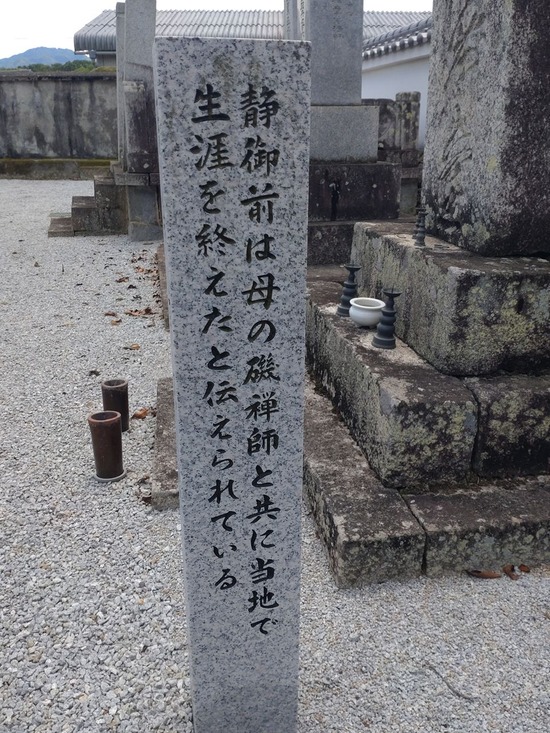 静御前は母の磯禅師と共に当地で
生涯を終えたと伝えられている